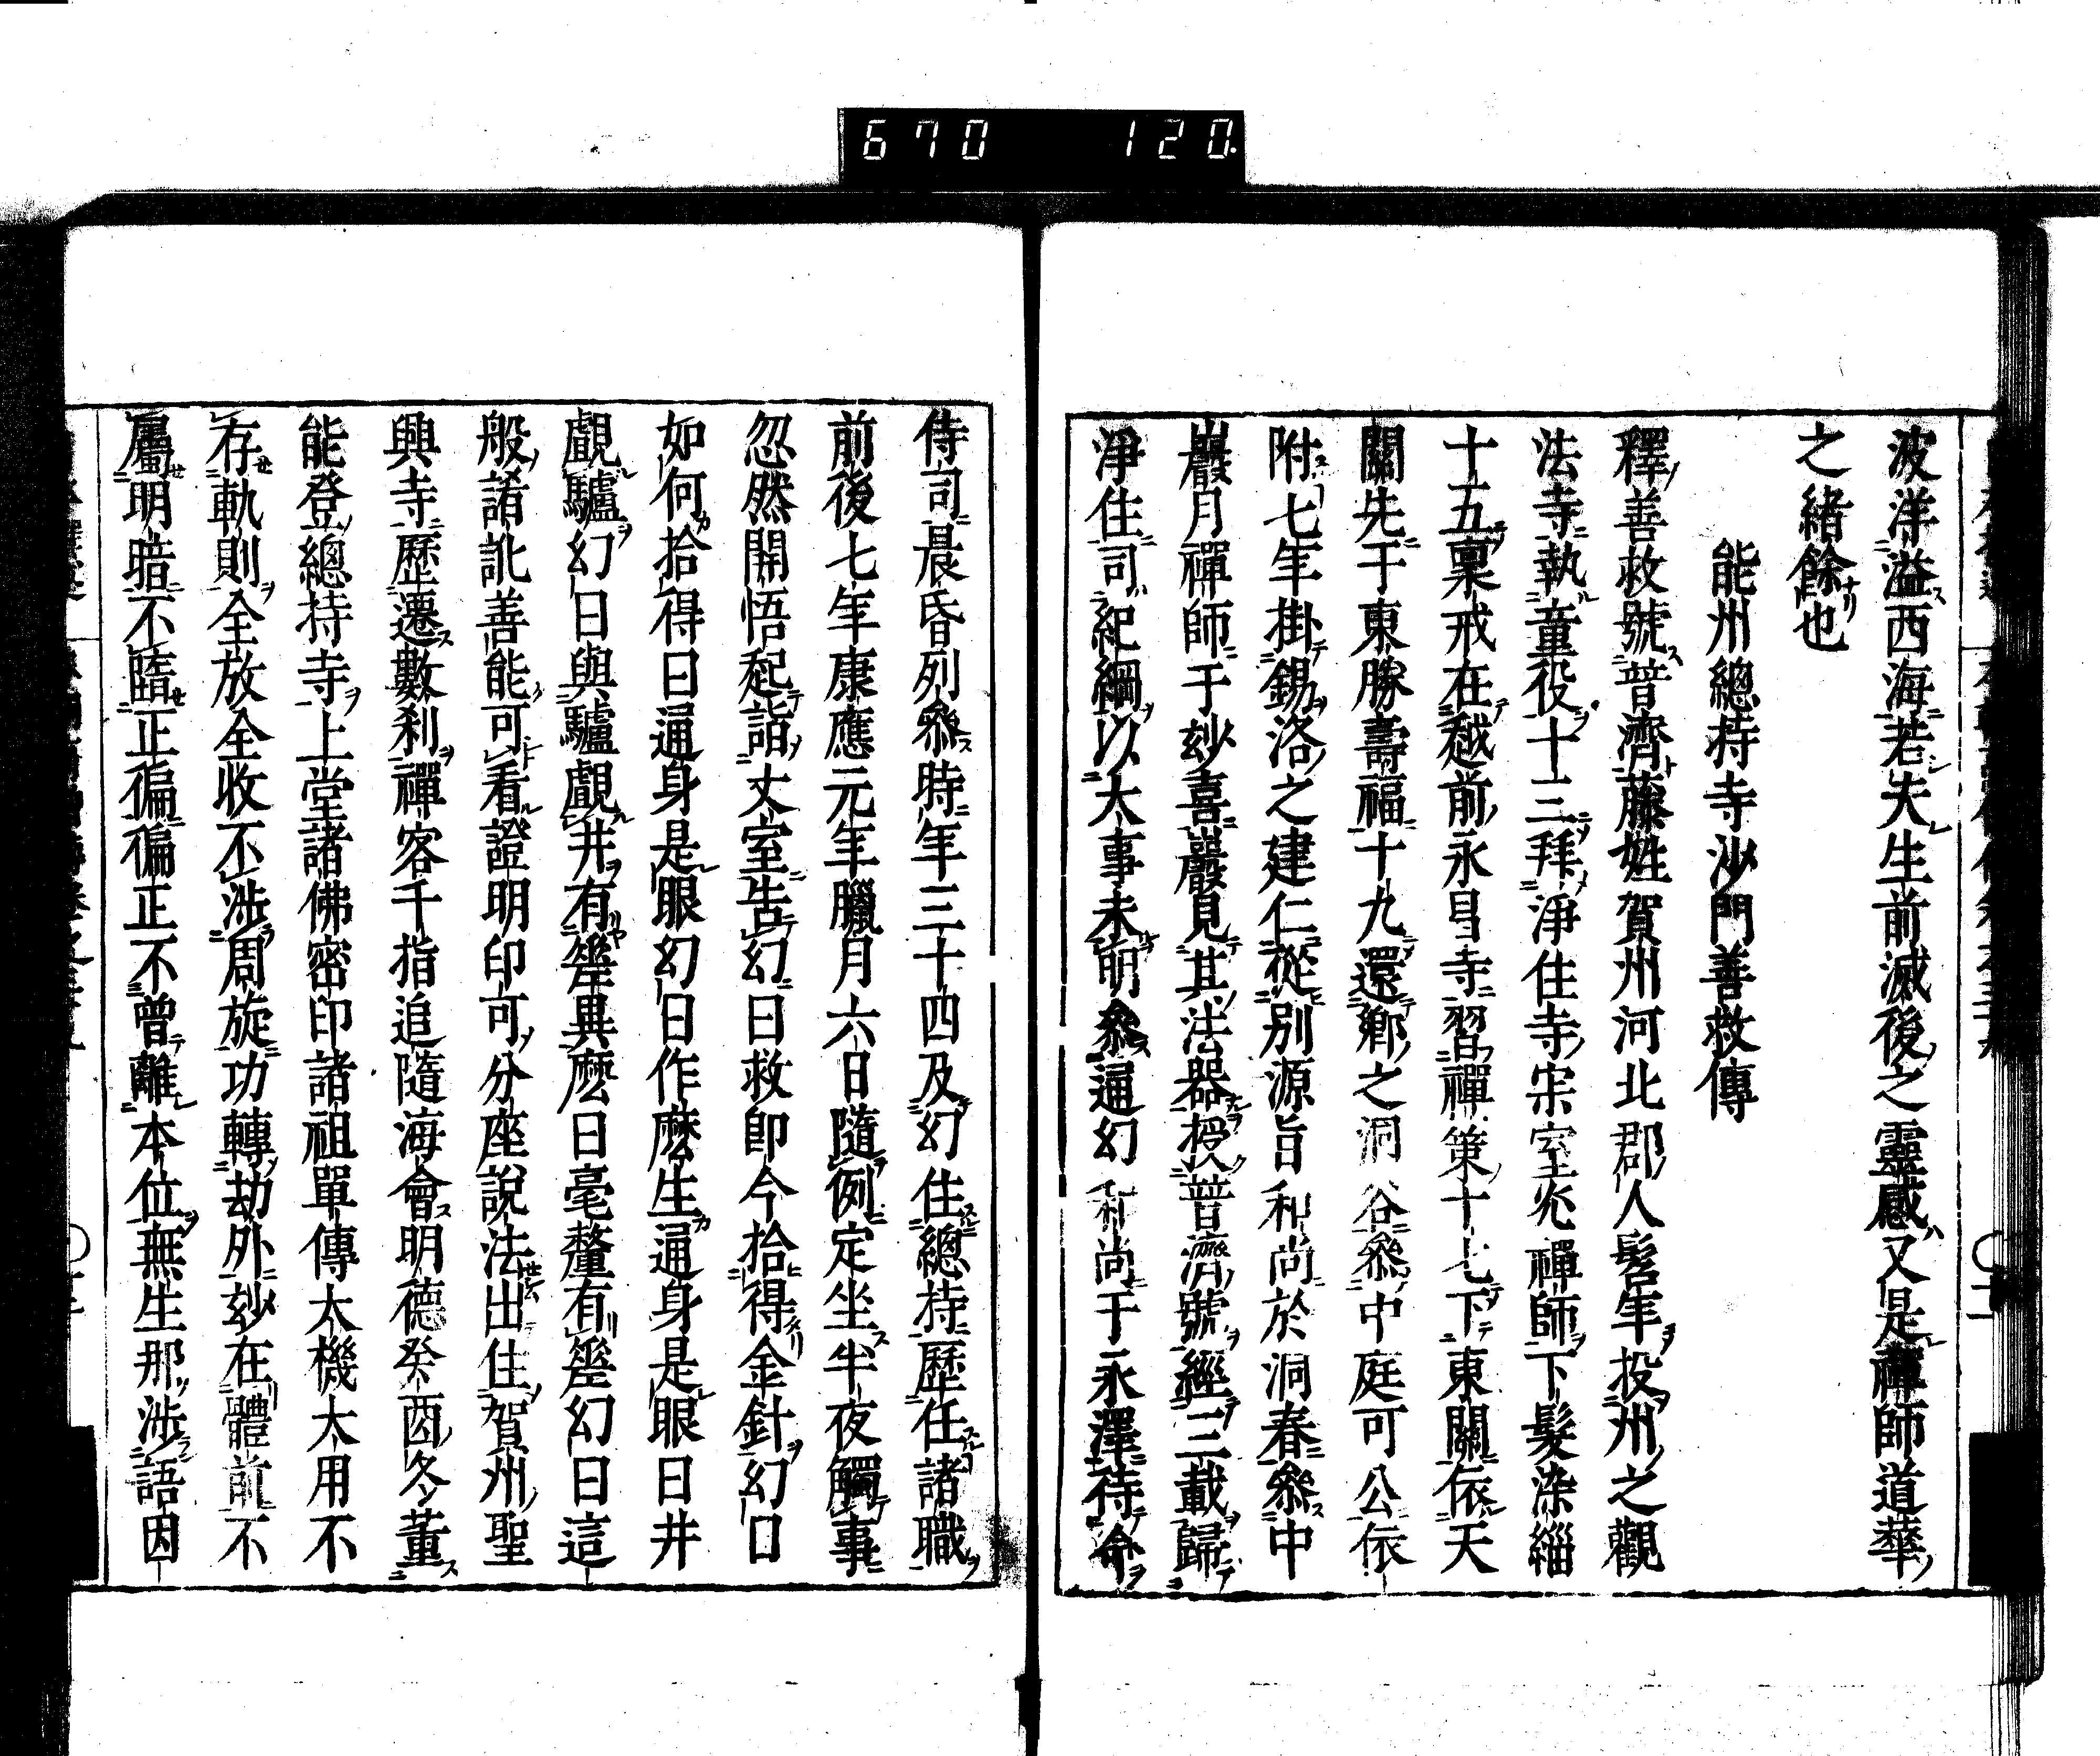 670 120
波洋溢西海若夫生前滅後之靈感又是禪師道華
之緒餘也
能州總持寺沙門善救傳
釋善救號普濟藤姓賀州河北郡人髫年投州之觀
法寺執童役十三拜淨住寺宗室兆禪師下髮染緇
十五稟戒在越前永昌寺習禪策十七下東關依天
關先于東勝壽福十九還鄉之洞谷參中庭可公依
附七年掛錫洛之建仁從別源旨和尚於洞春參中
巖月禪師于玅喜巖見其法器授普濟號經三載歸
淨住司紀綱以大事未明參通幻和尚于永澤待命
侍司晨昏列參時年三十四及幻住總持歷任諸職
前後七年康應元年臘月六日隨例定坐半夜觸事
忽然開悟起詣丈室告幻曰救即今拾得金針幻曰
如何拾得曰通身是眼幻曰作麼生通身是眼曰井
覷驢幻曰與驢覷井有差異麼曰毫釐有差幻曰這
般誵訛善能可看證明印可分座說法出住賀州聖
興寺歷遷數刹禪客千指追隨海會明德癸酉冬董
能登總持寺上堂諸佛密印諸祖單傳大機大用不
存軌則全放全收不涉周旋功轉劫外玅在體前不
屬明暗不臨正偏偏正不曾離本位無生那涉語因